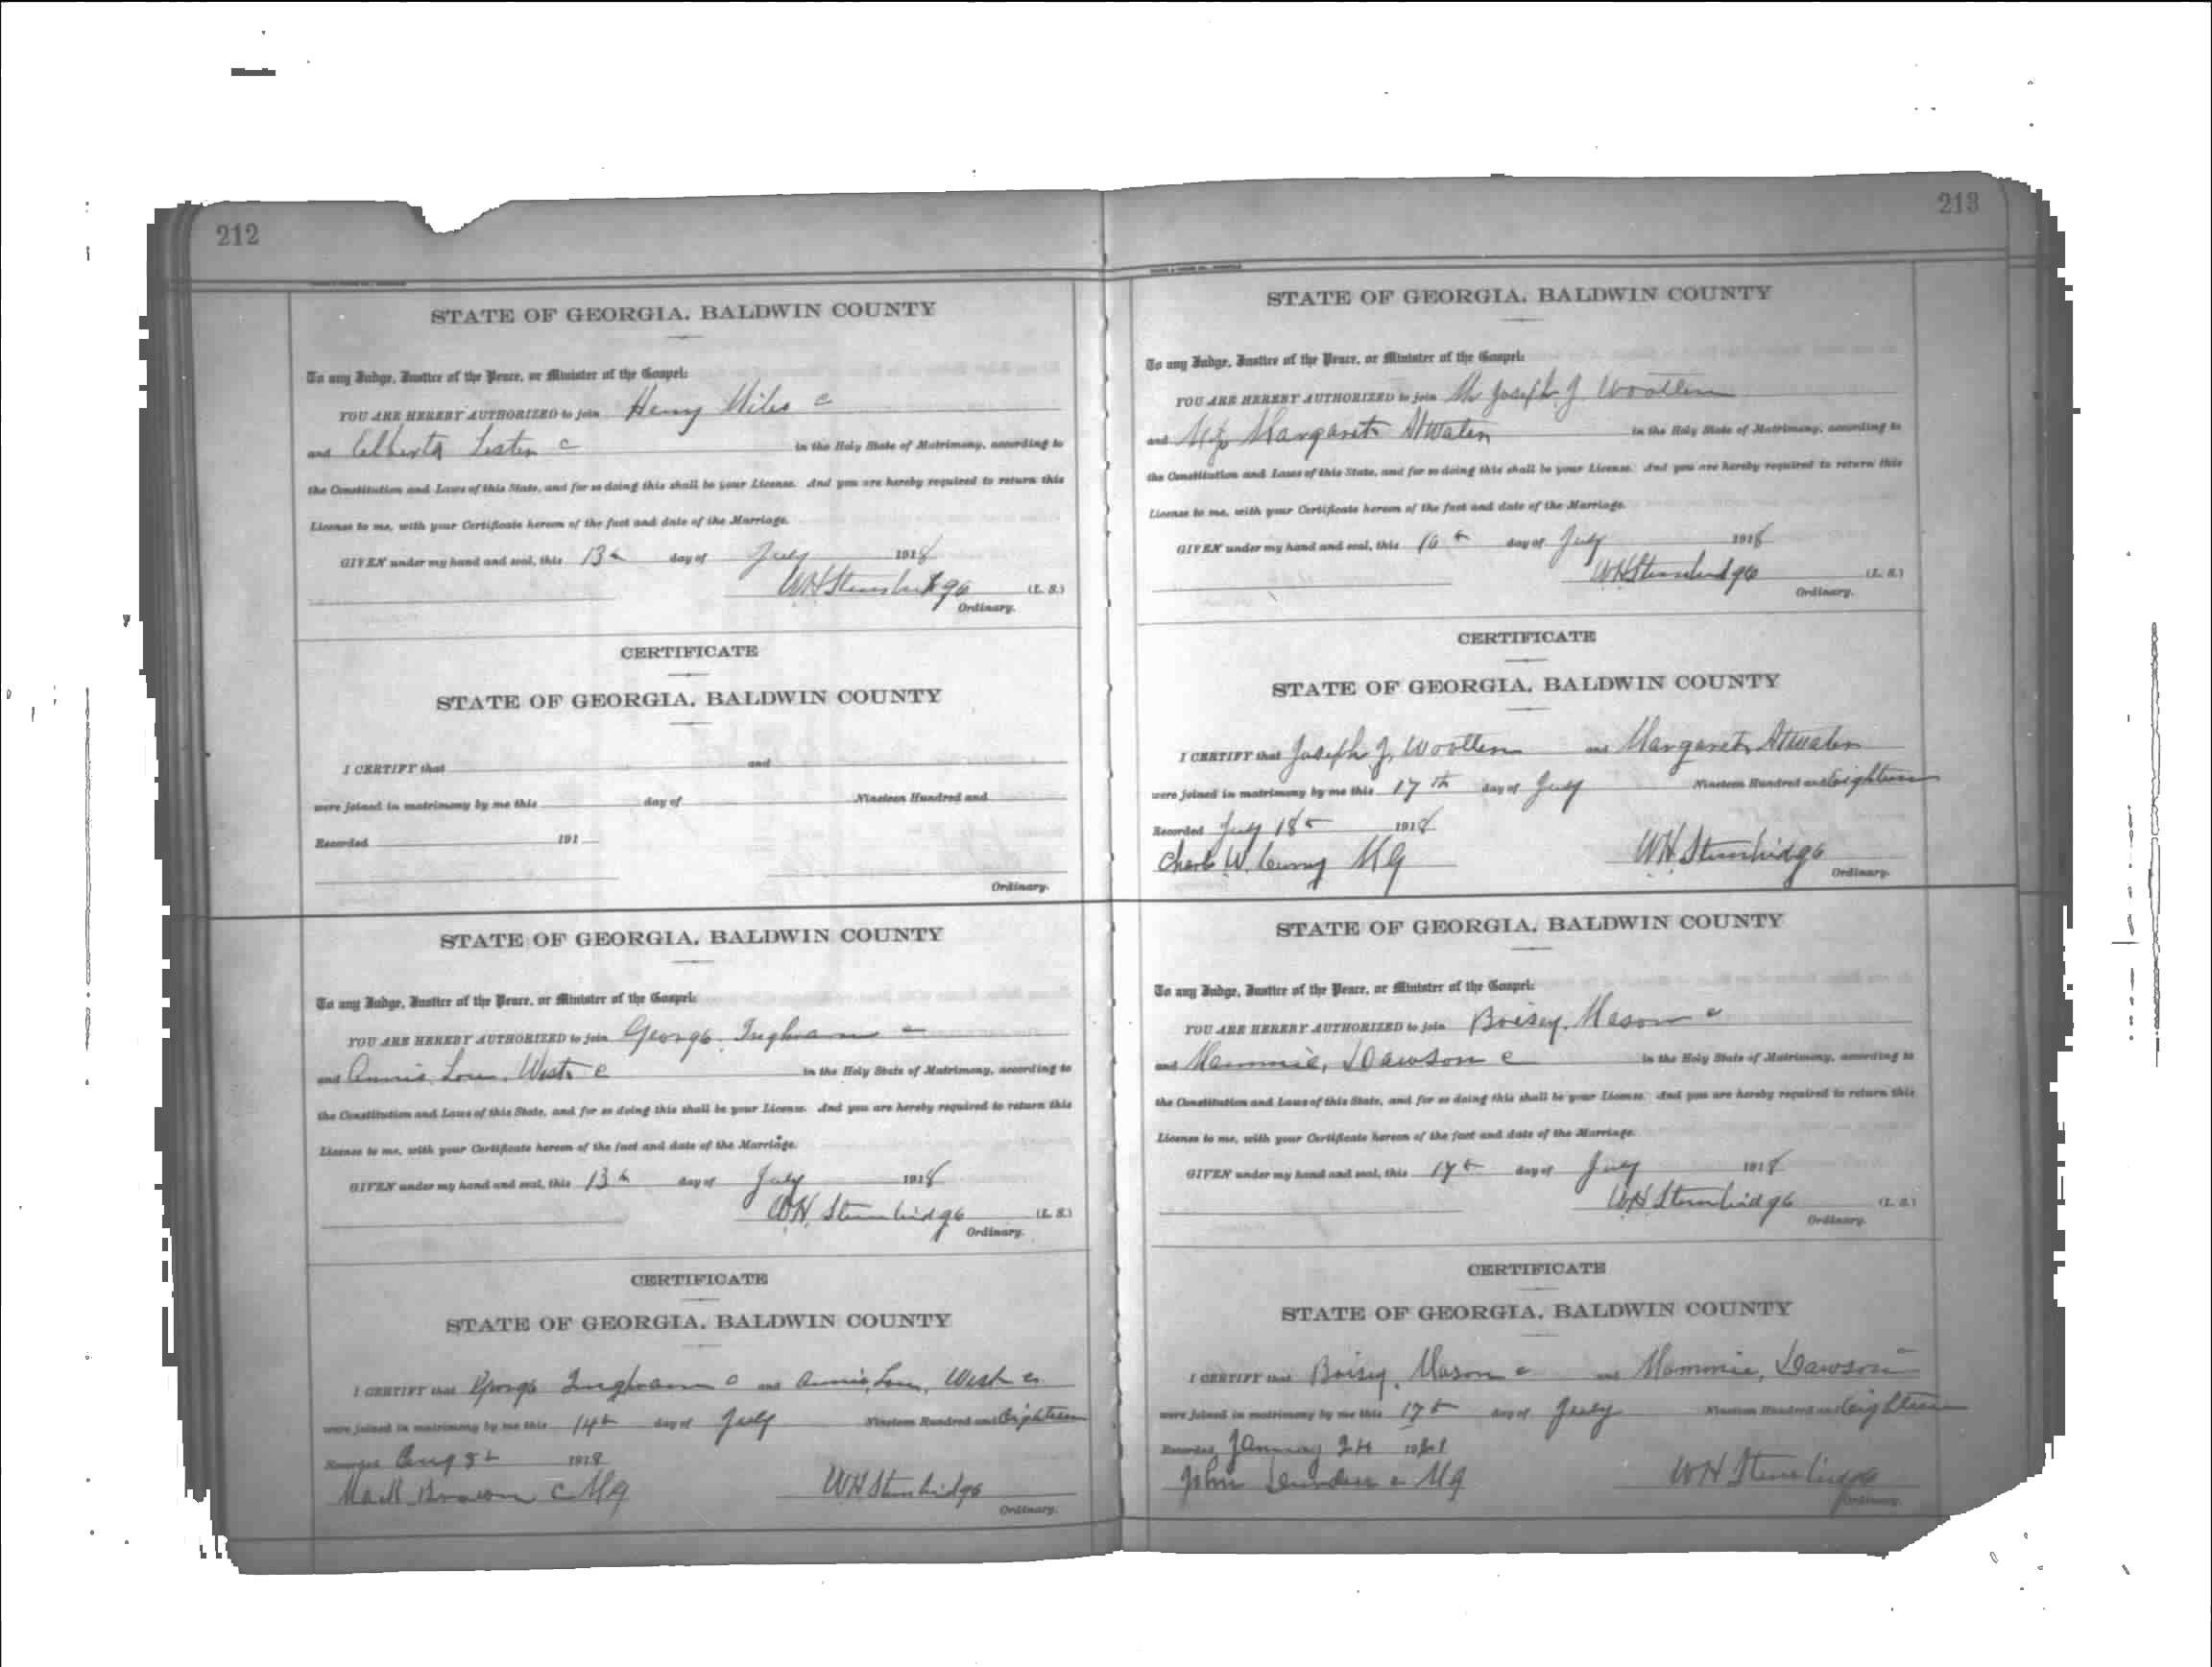 212
STATE OF GEORGIA, BALDWIN COUNTY
To any Judge, Justice of the Peace, or Minister of the Gospel:
YOU ARE HEREBY AUTHORIZED to join Henry Miles c
and Alberta Lester c in the Holy State of Matrimony, according to
the Constitution and Laws of this State, and for so doing this shall be your License. And you are hereby required to return this
License to me, with your Certificate hereon of the fact and date of the Marriage.
GIVEN under my hand and seal, this 13th day of July 1918
WH Stembridge (L. S.)
Ordinary.
CERTIFICATE
STATE OF GEORGIA, BALDWIN COUNTY
I CERTIFY that and
were joined in matrimony by me this day of Nineteen Hundred and
Recorded 191
Ordinary.
STATE OF GEORGIA, BALDWIN COUNTY
To any Judge, Justice of the Peace, or Minister of the Gospel:
YOU ARE HEREBY AUTHORIZED to join George Ingham c
and Annie Lou West c in the Holy State of Matrimony, according to
the Constitution and Laws of this State, and for so doing this shall be your License. And you are hereby required to return this
License to me, with your Certificate hereon of the fact and date of the Marriage.
GIVEN under my hand and seal, this 13th day of July 1918
WH Stembridge (L. S.)
Ordinary.
CERTIFICATE
STATE OF GEORGIA, BALDWIN COUNTY
I CERTIFY that George Ingham c and Annie Lou, West c
were joined in matrimony by me this 14th day of July Nineteen Hundred and Eighteen
Recorded Aug 8th 1918
Mack Brown c MG WH Stembridge
Ordinary.
213
STATE OF GEORGIA, BALDWIN COUNTY
To any Judge, Justice of the Peace, or Minister of the Gospel:
YOU ARE HEREBY AUTHORIZED to join Mr Joseph J. Wootten
and Margaret Atwater in the Holy State of Matrimony, according to
the Constitution and Laws of this State, and for so doing this shall be your License. And you are hereby required to return this
License to me, with your Certificate hereon of the fact and date of the Marriage.
GIVEN under my hand and seal, this 16th day of July 1918
WH Stembridge (L. S.)
Ordinary.
CERTIFICATE
STATE OF GEORGIA, BALDWIN COUNTY
I CERTIFY that Joseph J. Wootten and Margaret Atwater
were joined in matrimony by me this 17th day of July Nineteen Hundred and Eighteen
Recorded July 18th 1918
W. MG WH Stembridge
Ordinary.
STATE OF GEORGIA, BALDWIN COUNTY
To any Judge, Justice of the Peace, or Minister of the Gospel:
YOU ARE HEREBY AUTHORIZED to join Boisey, Mason c
and Mammie, Dawson c in the Holy State of Matrimony, according to
the Constitution and Laws of this State, and for so doing this shall be your License. And you are hereby required to return this
License to me, with your Certificate hereon of the fact and date of the Marriage.
GIVEN under my hand and seal, this 17th day of July 1918
WH Stembridge (L. S.)
Ordinary.
CERTIFICATE
STATE OF GEORGIA, BALDWIN COUNTY
I CERTIFY that Boisey, Mason c and Mammie, Dawson c
were joined in matrimony by me this 17th day of July Nineteen Hundred and Eighteen
Recorded January 24
John c MG WH Stembridge
Ordinary.